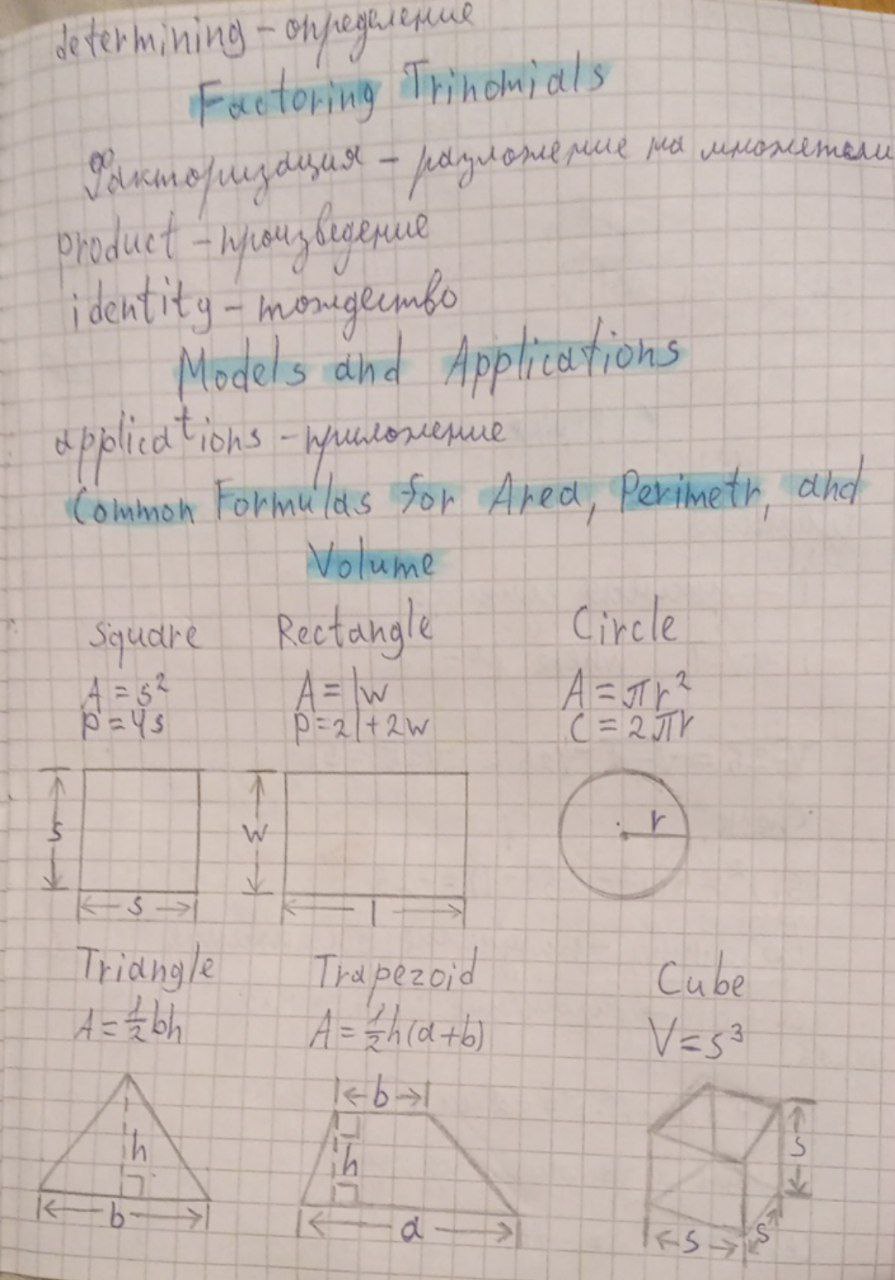 determining - определение
Factoring Trinomials
Факторизация - разложение на множетели
product - произведение
identity - тождество
Models and Applications
applications - приложение
Common Formulas for Area, Perimetr, and
Volume
Square Rectangle Circle
A = s² A = lw A = πr²
P = 4s P = 2l + 2w C = 2πr
s w r
s l
Triangle Trapezoid Cube
A = ½bh A = ½h(a+b) V = s³
b
h h s
b a s s